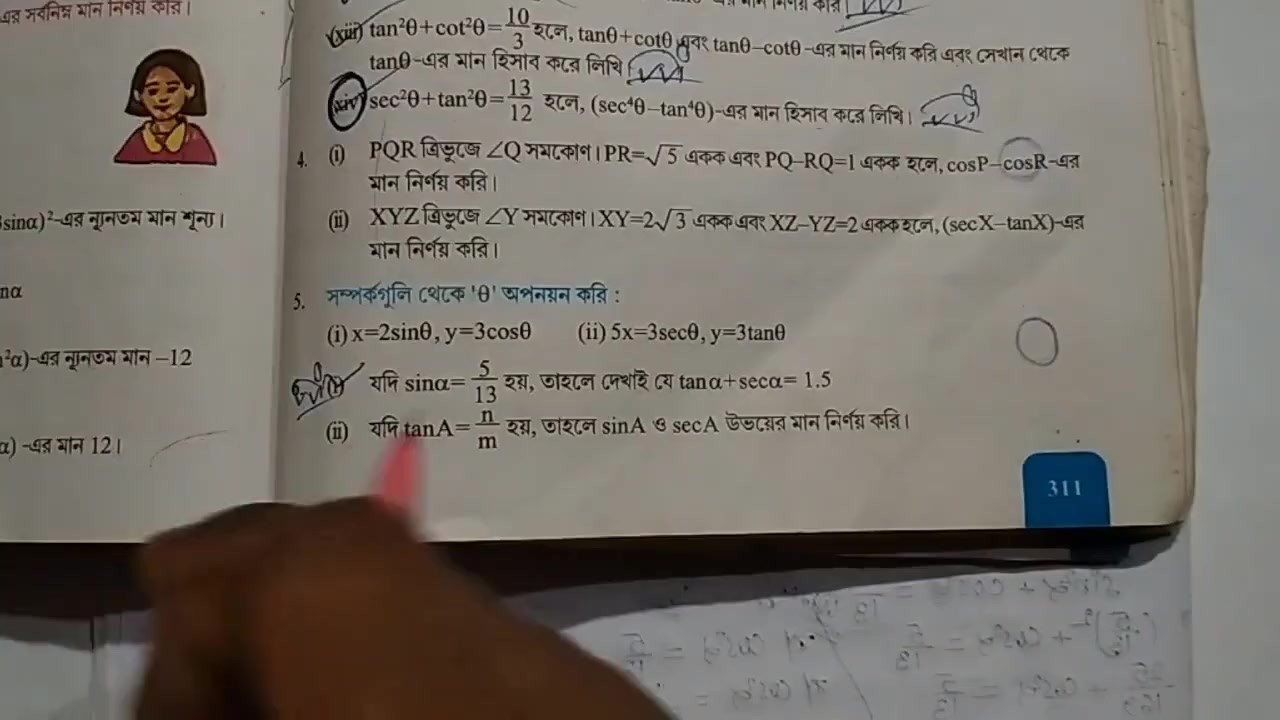 এর সর্বনিম্ন মান নির্ণয় করি।
sinα)²-এর ন্যূনতম মান শূন্য।
nα
²α)-এর ন্যূনতম মান –12
α) -এর মান 12।
এর মান নির্ণয় করি।
(xiii) tan²θ+cot²θ=10/3 হলে, tanθ+cotθ এবং tanθ–cotθ -এর মান নির্ণয় করি এবং সেখান থেকে
tanθ-এর মান হিসাব করে লিখি।
(xiv) sec²θ+tan²θ=13/12 হলে, (sec⁴θ–tan⁴θ)-এর মান হিসাব করে লিখি।
4. (i) PQR ত্রিভুজে ∠Q সমকোণ। PR=√5 একক এবং PQ–RQ=1 একক হলে, cosP–cosR-এর
মান নির্ণয় করি।
(ii) XYZ ত্রিভুজে ∠Y সমকোণ। XY=2√3 একক এবং XZ–YZ=2 একক হলে, (secX–tanX)-এর
মান নির্ণয় করি।
5. সম্পর্কগুলি থেকে 'θ' অপনয়ন করি :
(i) x=2sinθ, y=3cosθ (ii) 5x=3secθ, y=3tanθ
যদি sinα= 5/13 হয়, তাহলে দেখাই যে tanα+secα= 1.5
(ii) যদি tanA= n/m হয়, তাহলে sinA ও secA উভয়ের মান নির্ণয় করি।
311